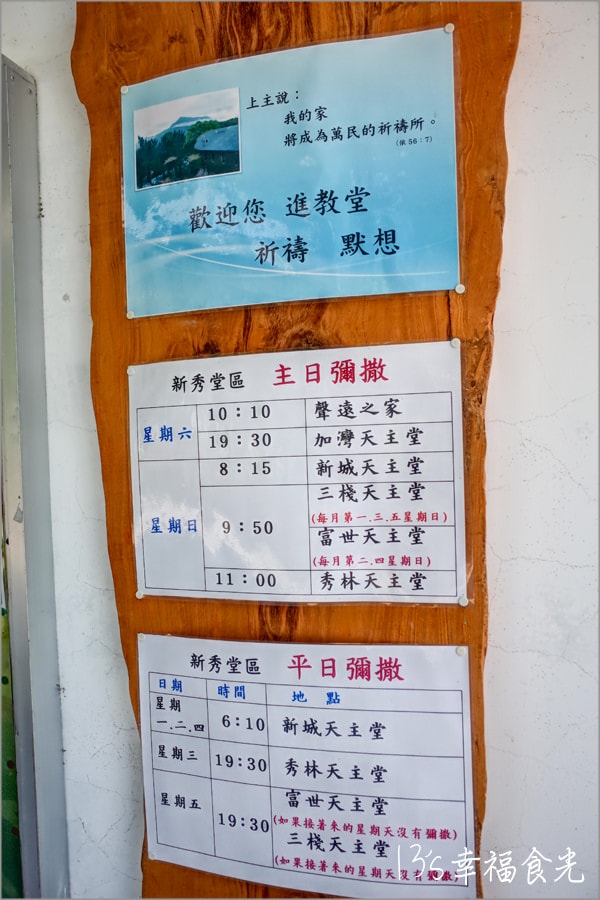 上主說：
我的家
將成為萬民的祈禱所。
(依 56：7)
歡迎您 進教堂
祈禱 默想
新秀堂區 主日彌撒
星期六 10：10 聲遠之家
19：30 加灣天主堂
星期日 8：15 新城天主堂
9：50 三棧天主堂
(每月第一.三.五星期日)
富世天主堂
(每月第二.四星期日)
11：00 秀林天主堂
新秀堂區 平日彌撒
日期 時間 地點
星期
一.二.四 6：10 新城天主堂
星期三 19：30 秀林天主堂
星期五 19：30 富世天主堂
(如果接著來的星期天沒有彌撒)
三棧天主堂
(如果接著來的星期天沒有彌撒)
13's幸福食光